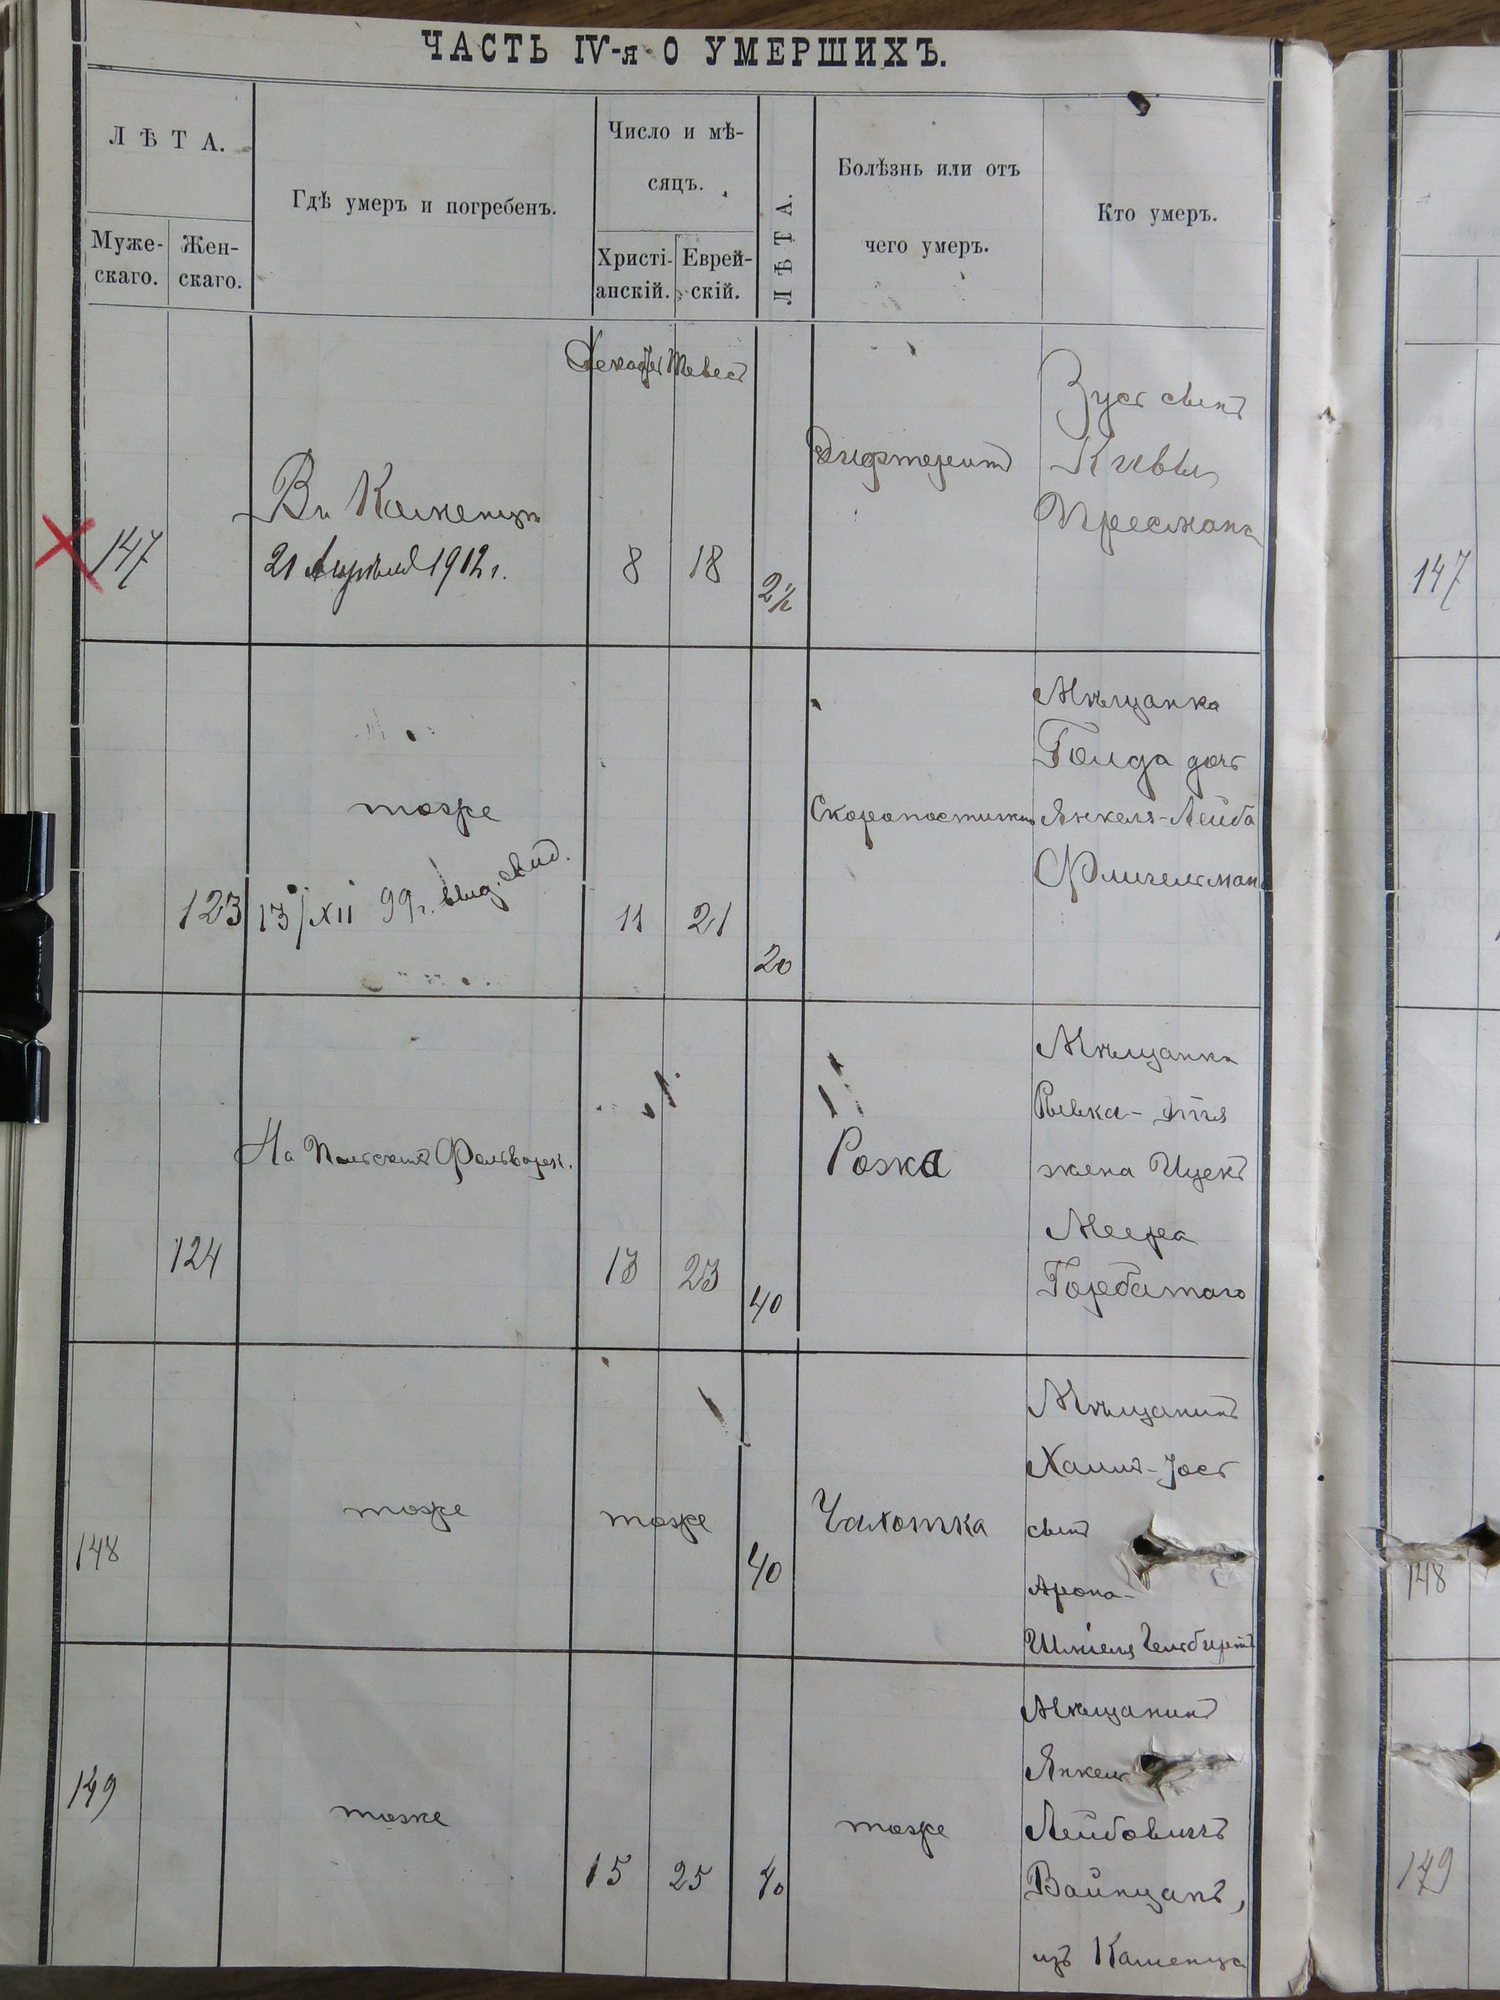 ЧАСТЬ IV-я О УМЕРШИХЪ.
ЛѢТА.
Муже-
скаго.
Жен-
скаго.
Гдѣ умеръ и погребенъ.
Число и мѣ-
сяцъ.
Христі-
анскій.
Еврей-
скій.
ЛѢТА.
Болѣзнь или отъ
чего умеръ.
Кто умеръ.
147
Въ Каменцѣ
21 Апрѣля 1912 г.
Декабрь Тевесъ
8 18
2½
Дифтеритъ
Зусь сынъ
Кивы
Пресмана
147
123
тоже
13/XII 99 г. выд. свид.
11 21
20
Скоропостижно
Мѣщанка
Голда дочь
Янкеля-Лейба
Флигельмана
124
На Польскихъ Фольварк.
13 23
40
Рожа
Мѣщанка
Рывка-
жена Ицекъ
Меера
Горбатаго
148
тоже
тоже
40
Чахотка
Мѣщанинъ
Хаимъ-Іось
сынъ
Арона-
Шміеля
148
149
тоже
15 25
40
тоже
Мѣщанинъ
Янкель
Лейбовичъ
Вайнцанъ,
изъ Каменца
149